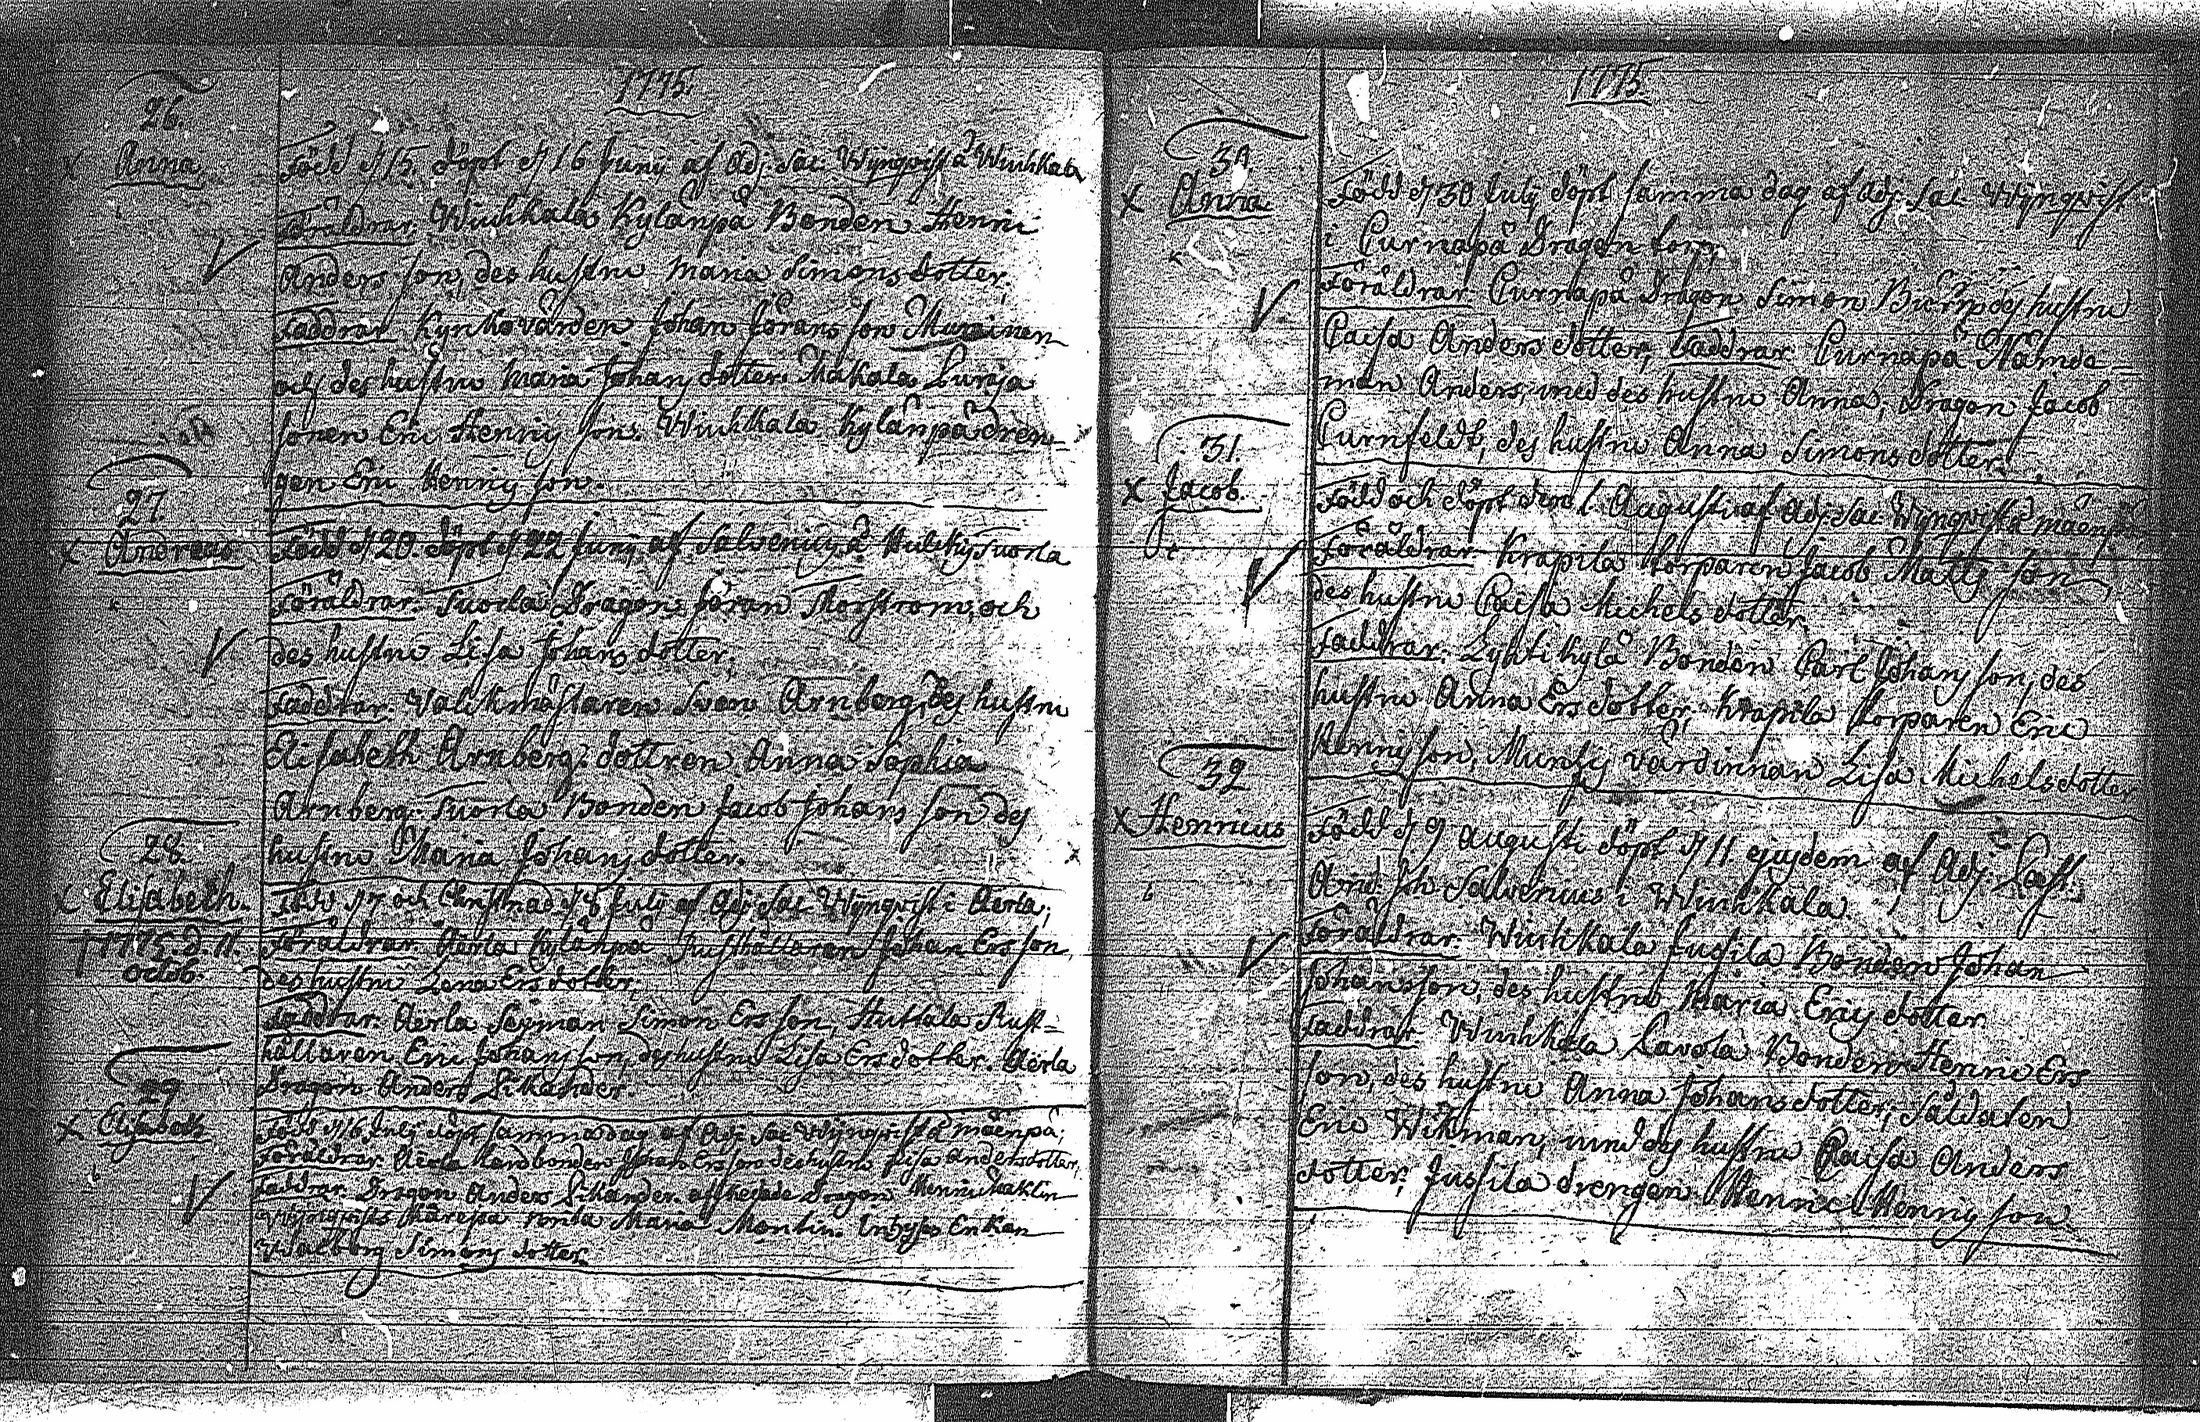 1775.
26.
x Anna
Född d 15. döpt d 16 Junij af Adj. Sac. Wijnqvist å Wiuhkala
Föräldrar. Wiuhkala Kylänpä Bonden Henric
Anders son, des hustru Maria Simons dotter.
Faddrar Kynko värden Johan Jörans son Mureinen
och des hustru Maria Johans dotter. Makala
sonen Eric Henrics son. Wiuhkala Kylänpä dren-
gen Eric Henrics son.
27.
x Andreas
Född d 20. döpt d 22 Junij af Salvenius å Suorla
Föräldrar. Suorla Dragon Jöran Morström, och
des hustru Lisa Johans dotter.
Faddrar. Arnberg, des hustru
Elisabeth Arnberg. dottren Anna Sophia
Arnberg. Suorla Bonden Jacob Johans son des
hustru Maria Johans dotter.
28.
x Elisabeth.
† 1775. d. 11.
octob.
Född d 7 och Christnad d 8 Julij af Adj. Sac. Wijnqvist i Aerla;
Föräldrar. Aerla Kylänpä Rusthållaren Johan Ers son,
des hustru Lena Ers dotter.
Faddrar. Aerla Simon Ers son, Huttala Rust-
hållaren Eric Johans son, des hustru Lisa Ers dotter. Aerla
Dragon Anders Likander.
29
x Elisabeth
Född d 16 Julij döpt samma dag af Adj. Sac. Wijnqvist å Mäenpä;
Föräldrar. Aerla Johan Ers son des hustru Lisa Anders dotter,
Faddrar. Dragon Anders Likander. afskedade Dragon
Wijnqvists Maria Montin. Enkan
Walborg Simons dotter.
1775
30
x Anna
Född d 30 Julij döpt samma dag af Adj. Sac. Wijnqvist
i Curnapä Dragon torp.
Föräldrar Curnapä Dragon Simon des hustru
Caisa Anders dotter, Faddrar Curnapä Nämde-
man Anders, med des hustru Anna, Dragon Jacob
Curnfeldt, des hustru Anna Simons dotter.
31.
x Jacob
Född och döpt den 1 Augusti af Adj. Sac. Wijnqvist å Mäenpä
Föräldrar Krapila torparen Jacob Matts son
des hustru Caisa Michels dotter.
Faddrar. Lyhtikylä Bonden Carl Johans son, des
hustru Anna Ers dotter, Krapila torparen Eric
Henrics son, värdinnan Lisa Michelsdotter
32
x Henricus
Född d 9 augusti döpt d 11 ejusdem af Adj.
And. Joh. Salvenius i Wiuhkala.
Föräldrar. Wiuhkala Jussila Bonden Johan
Johansson, des hustru Maria Erics dotter
Faddrar Wiuhkala Lavola Bonden Henric Ers
son, des hustru Anna Johans dotter, Saldaten
Eric Wikman, med des hustru Caisa Anders
dotter; Jussila drengen Henric Henrics son